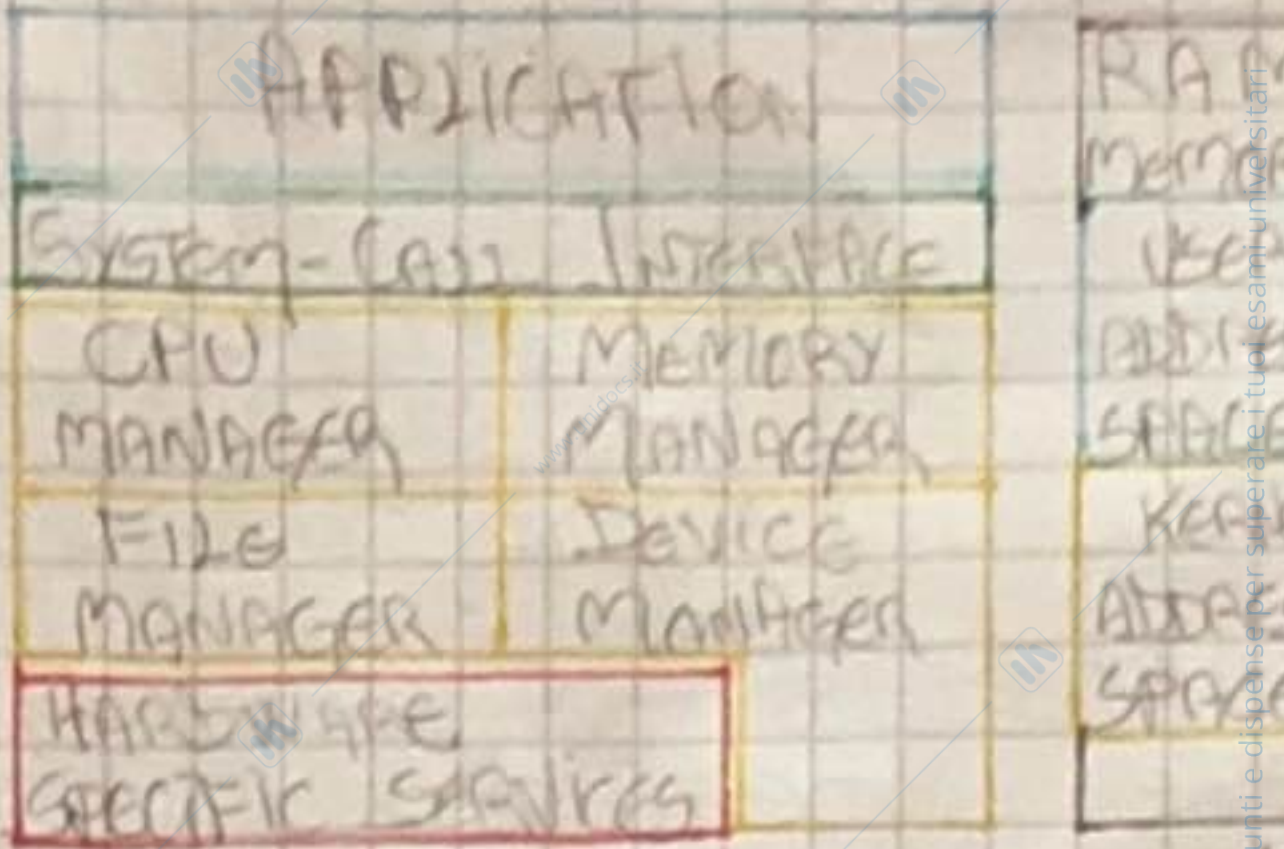 APPLICATION
SYSTEM-CALL INTERFACE
CPU
MANAGER
MEMORY
MANAGER
FILE
MANAGER
DEVICE
MANAGER
HARDWARE
SPECIFIC SERVICES
RA
MEMO
USE
ADD
SPAC
KER
ADDR
SPA
www.unidocs.it
unti e dispense per superare i tuoi esami universitari